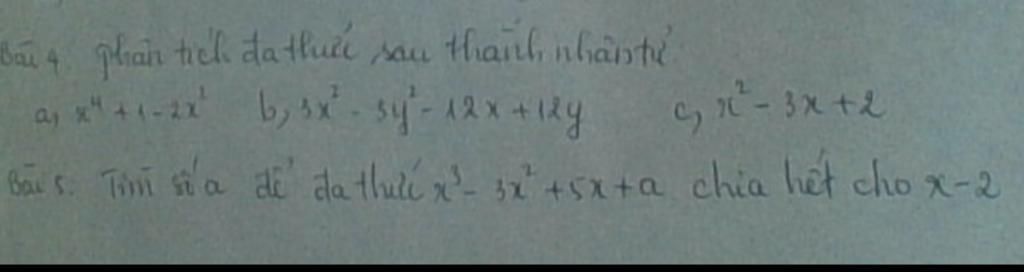 Bài 4. phân tích đa thức sau thành nhân tử
a, x⁴ + 1 - 2x² b, 3x² - 3y² - 12x + 12y c, x² - 3x + 2
Bài 5. Tìm số a để đa thức x³ - 3x² + 5x + a chia hết cho x - 2